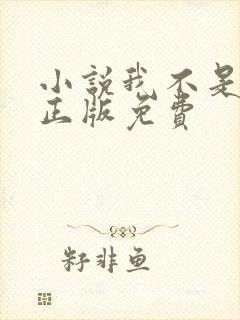 小說我不是
正版免費
籽非鱼